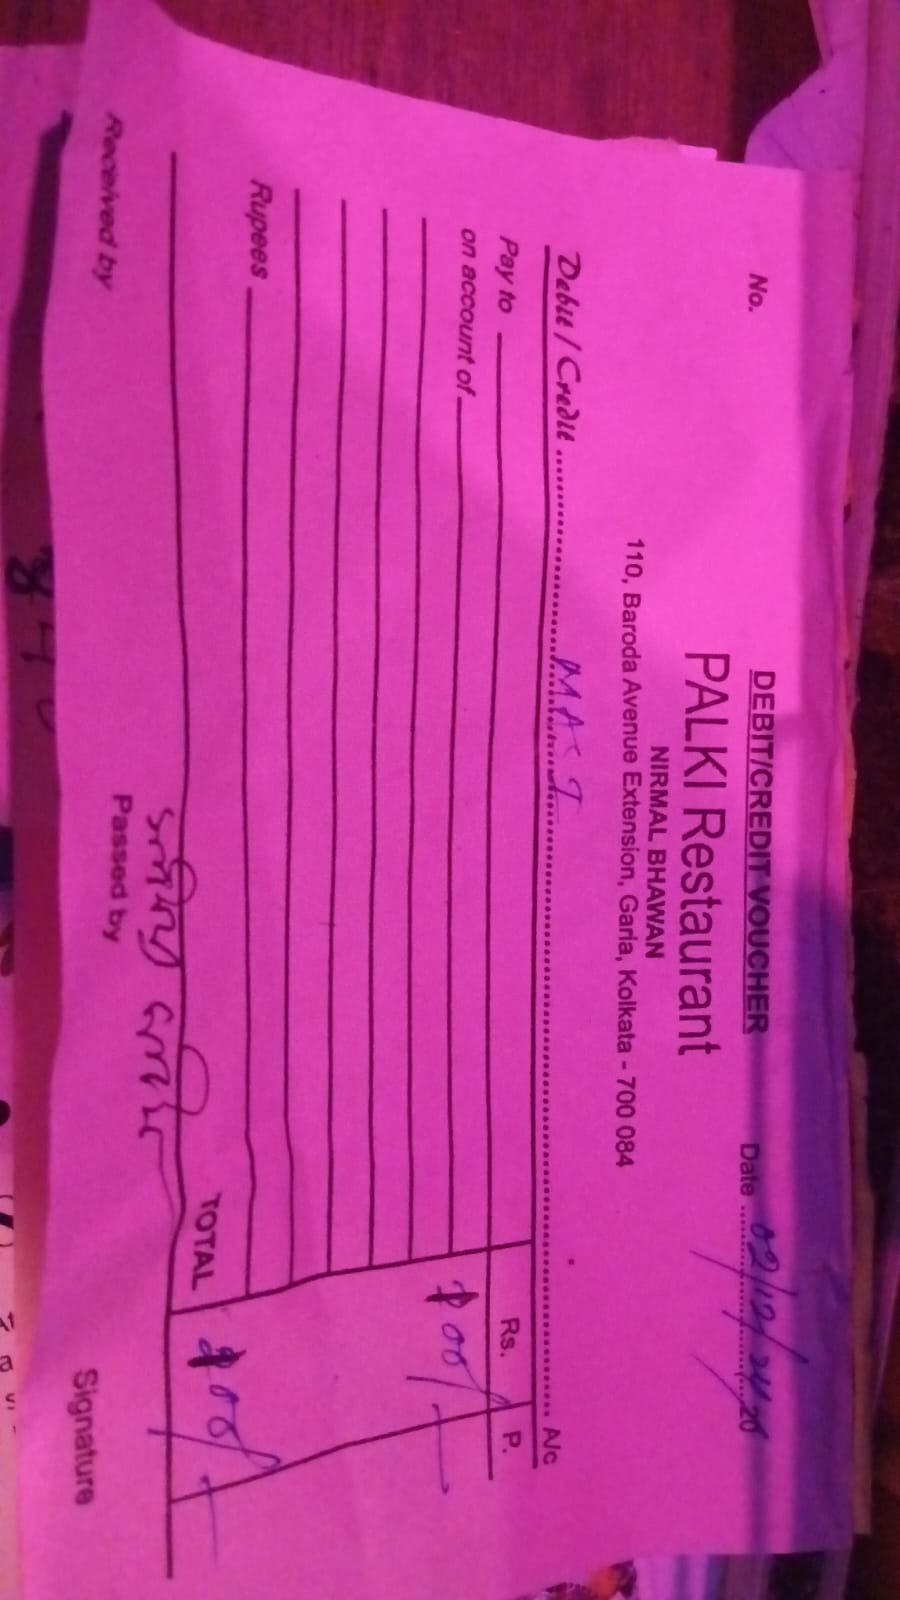 DEBIT/CREDIT VOUCHER
No.
Date 02/12/24
PALKI Restaurant
NIRMAL BHAWAN
110, Baroda Avenue Extension, Garia, Kolkata - 700 084
Debit / Credit A/c
Pay to Rs. P.
on account of
Rupees
TOTAL
Received by Passed by Signature